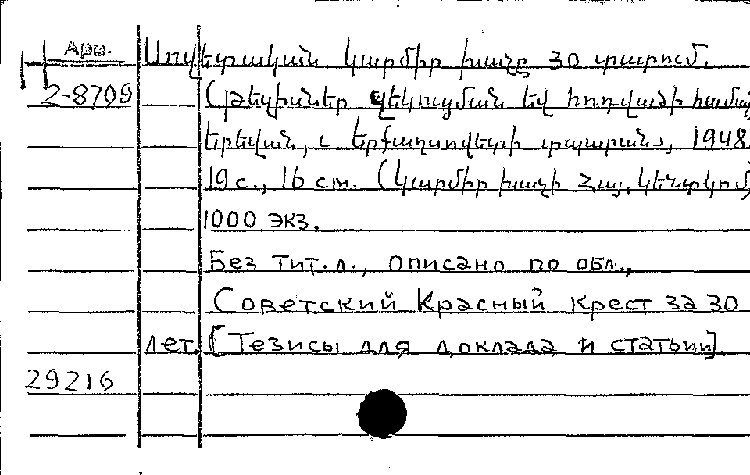 Арм. Սովետական կարմիր խաչը 30 տարում.
2-8709 (թեզիսներ զեկուցման եվ հոդվածի համար
Երեվան, Երքաղսովետի տպարան, 1948.
19 с., 16 см. (Կարմիր խաչի Հայ. կենտկոմ)
1000 экз.
Без тит. л., описано по обл.,
Советский Красный Крест за 30
лет. [Тезисы для доклада и статьи]
29216